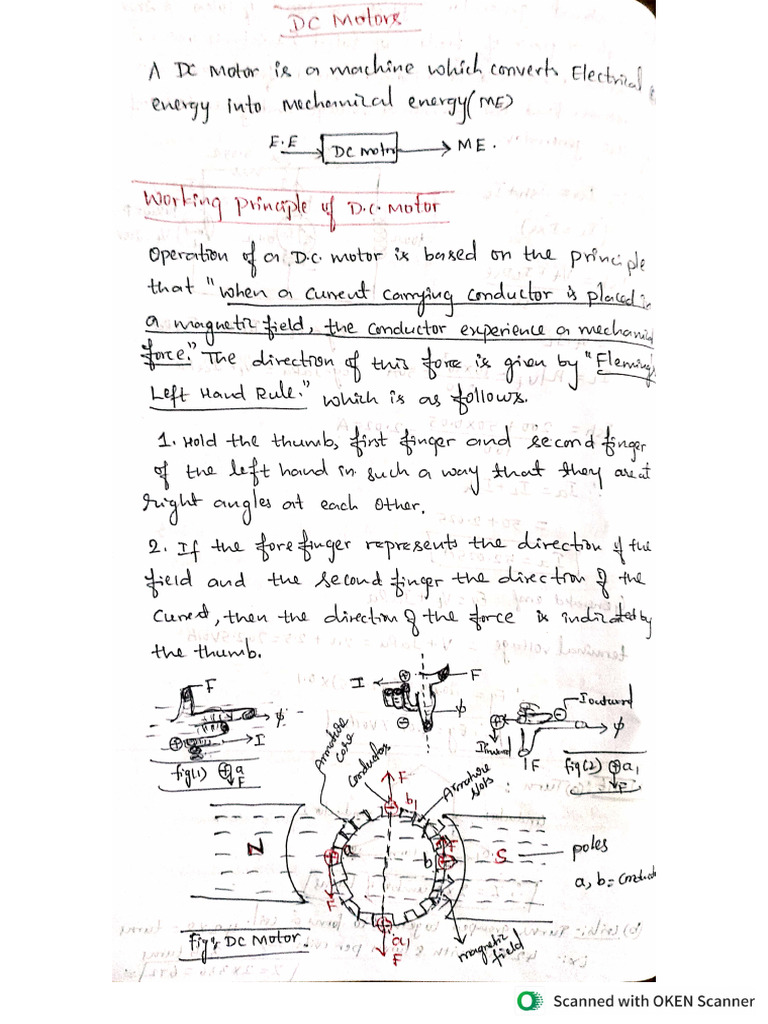 DC Motors
A DC Motor is a machine which converts Electrical
energy into Mechanical energy (ME)
E.E DC motor ME.
Working principle of D.C. Motor
Operation of a D.C. motor is based on the principle
that "when a current carrying conductor is placed in
a magnetic field, the conductor experience a mechanical
force." The direction of this force is given by "Fleming's
Left Hand Rule." which is as follows.
1. Hold the thumb, first finger and second finger
of the left hand in such a way that they are at
right angles at each other.
2. If the fore finger represents the direction of the
field and the second finger the direction of the
current, then the direction of the force is indicated by
the thumb.
F
φ
I
fig(1) ⊕ a
F
I ⊕ F
φ
⊖
I outward
φ
Inward
F
fig(2) ⊕ a1
F
Armature core
Conductors
F
b1
Armature slots
N
a
F
b
F
S
poles
a, b = conduct
a1
F
magnetic field
Fig: DC Motor
Scanned with OKEN Scanner